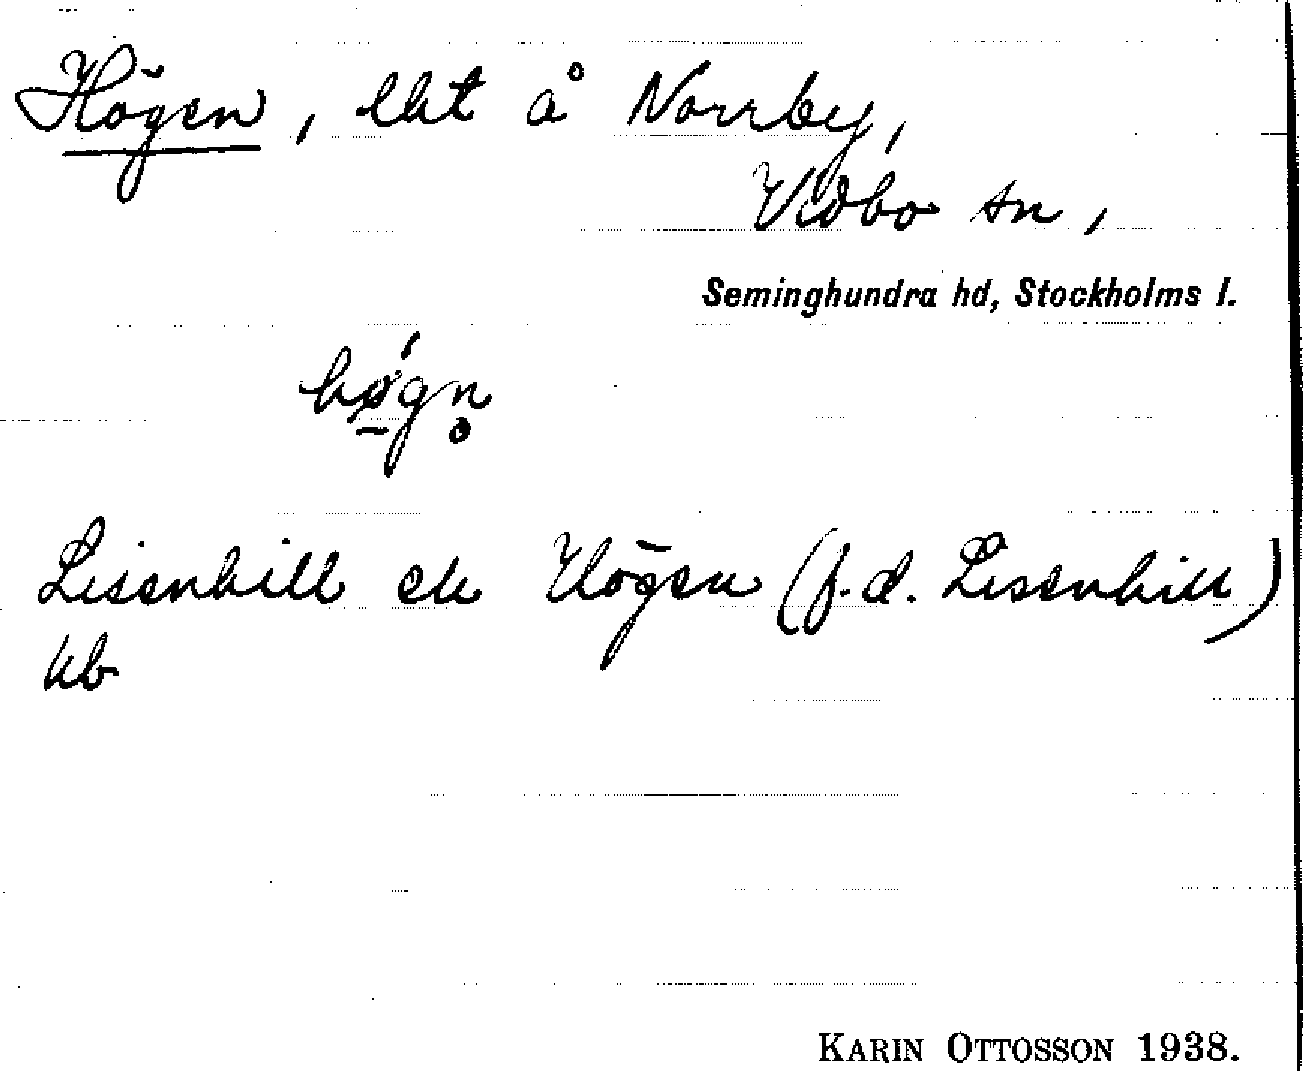 Högen, lht å Norrby,
Vidbo sn,
Seminghundra hd, Stockholms l.
hø̱´gn̥
Lisenhill el. Högen (f.d. Lisenhill)
kb
KARIN OTTOSSON 1938.